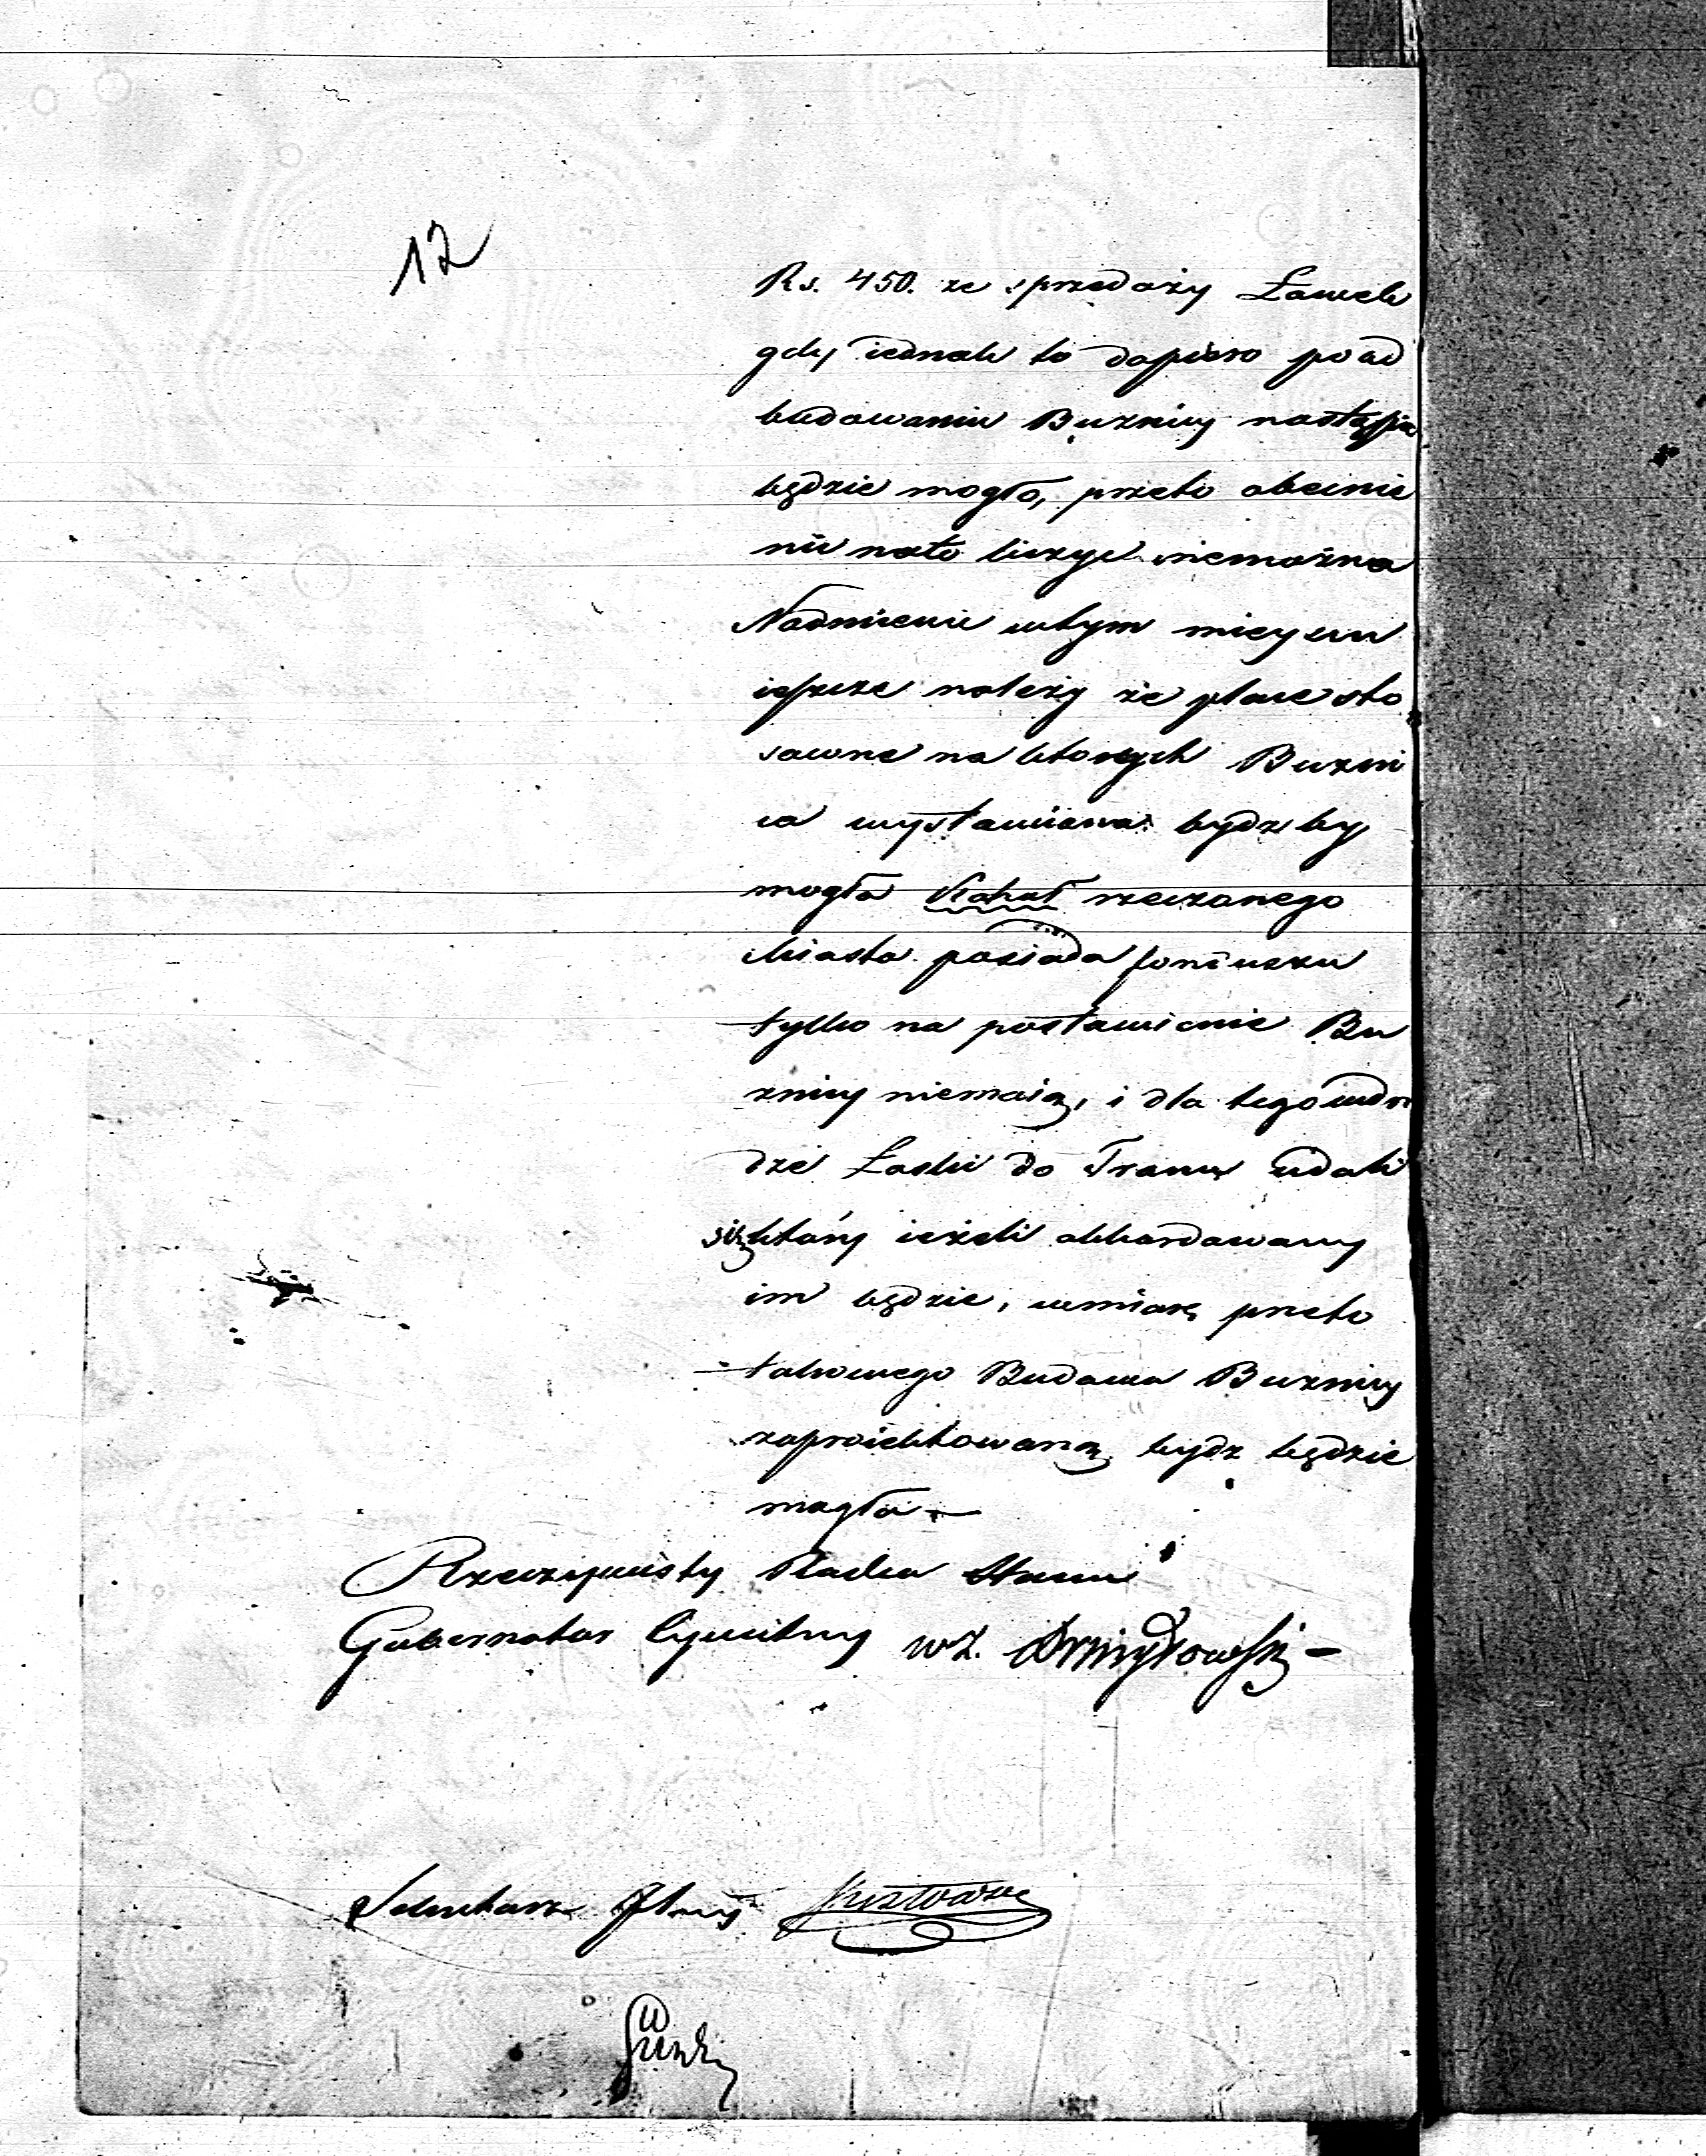 12
Rs. 450. ze sprzedaży Ławek
gdy iednak to dopiero po od
budowaniu Buznicy nastąpić
będzie mogło, przeto obecnie
nic nato liczyć niemożna
Nadmienić wtym mieyscu
ieszcze należy że place sto
sowne na których Buzni
ca wystawiona bydz by
mogła Kahał rzeczonego
Miasta posiada funduszu
tylko na postawienie Bu
znicy niemaią, i dla tego wdro
dze Łaski do Tronu udali
się który ieżeli akkordowany
im będzie, wmiarę przeto
takowego Budowa Buznicy
zaproiektowaną bydz będzie
mogła —
Rzeczywisty Radca Stanu
Gubernator Cywilny wz.
Sekretarz Jlny